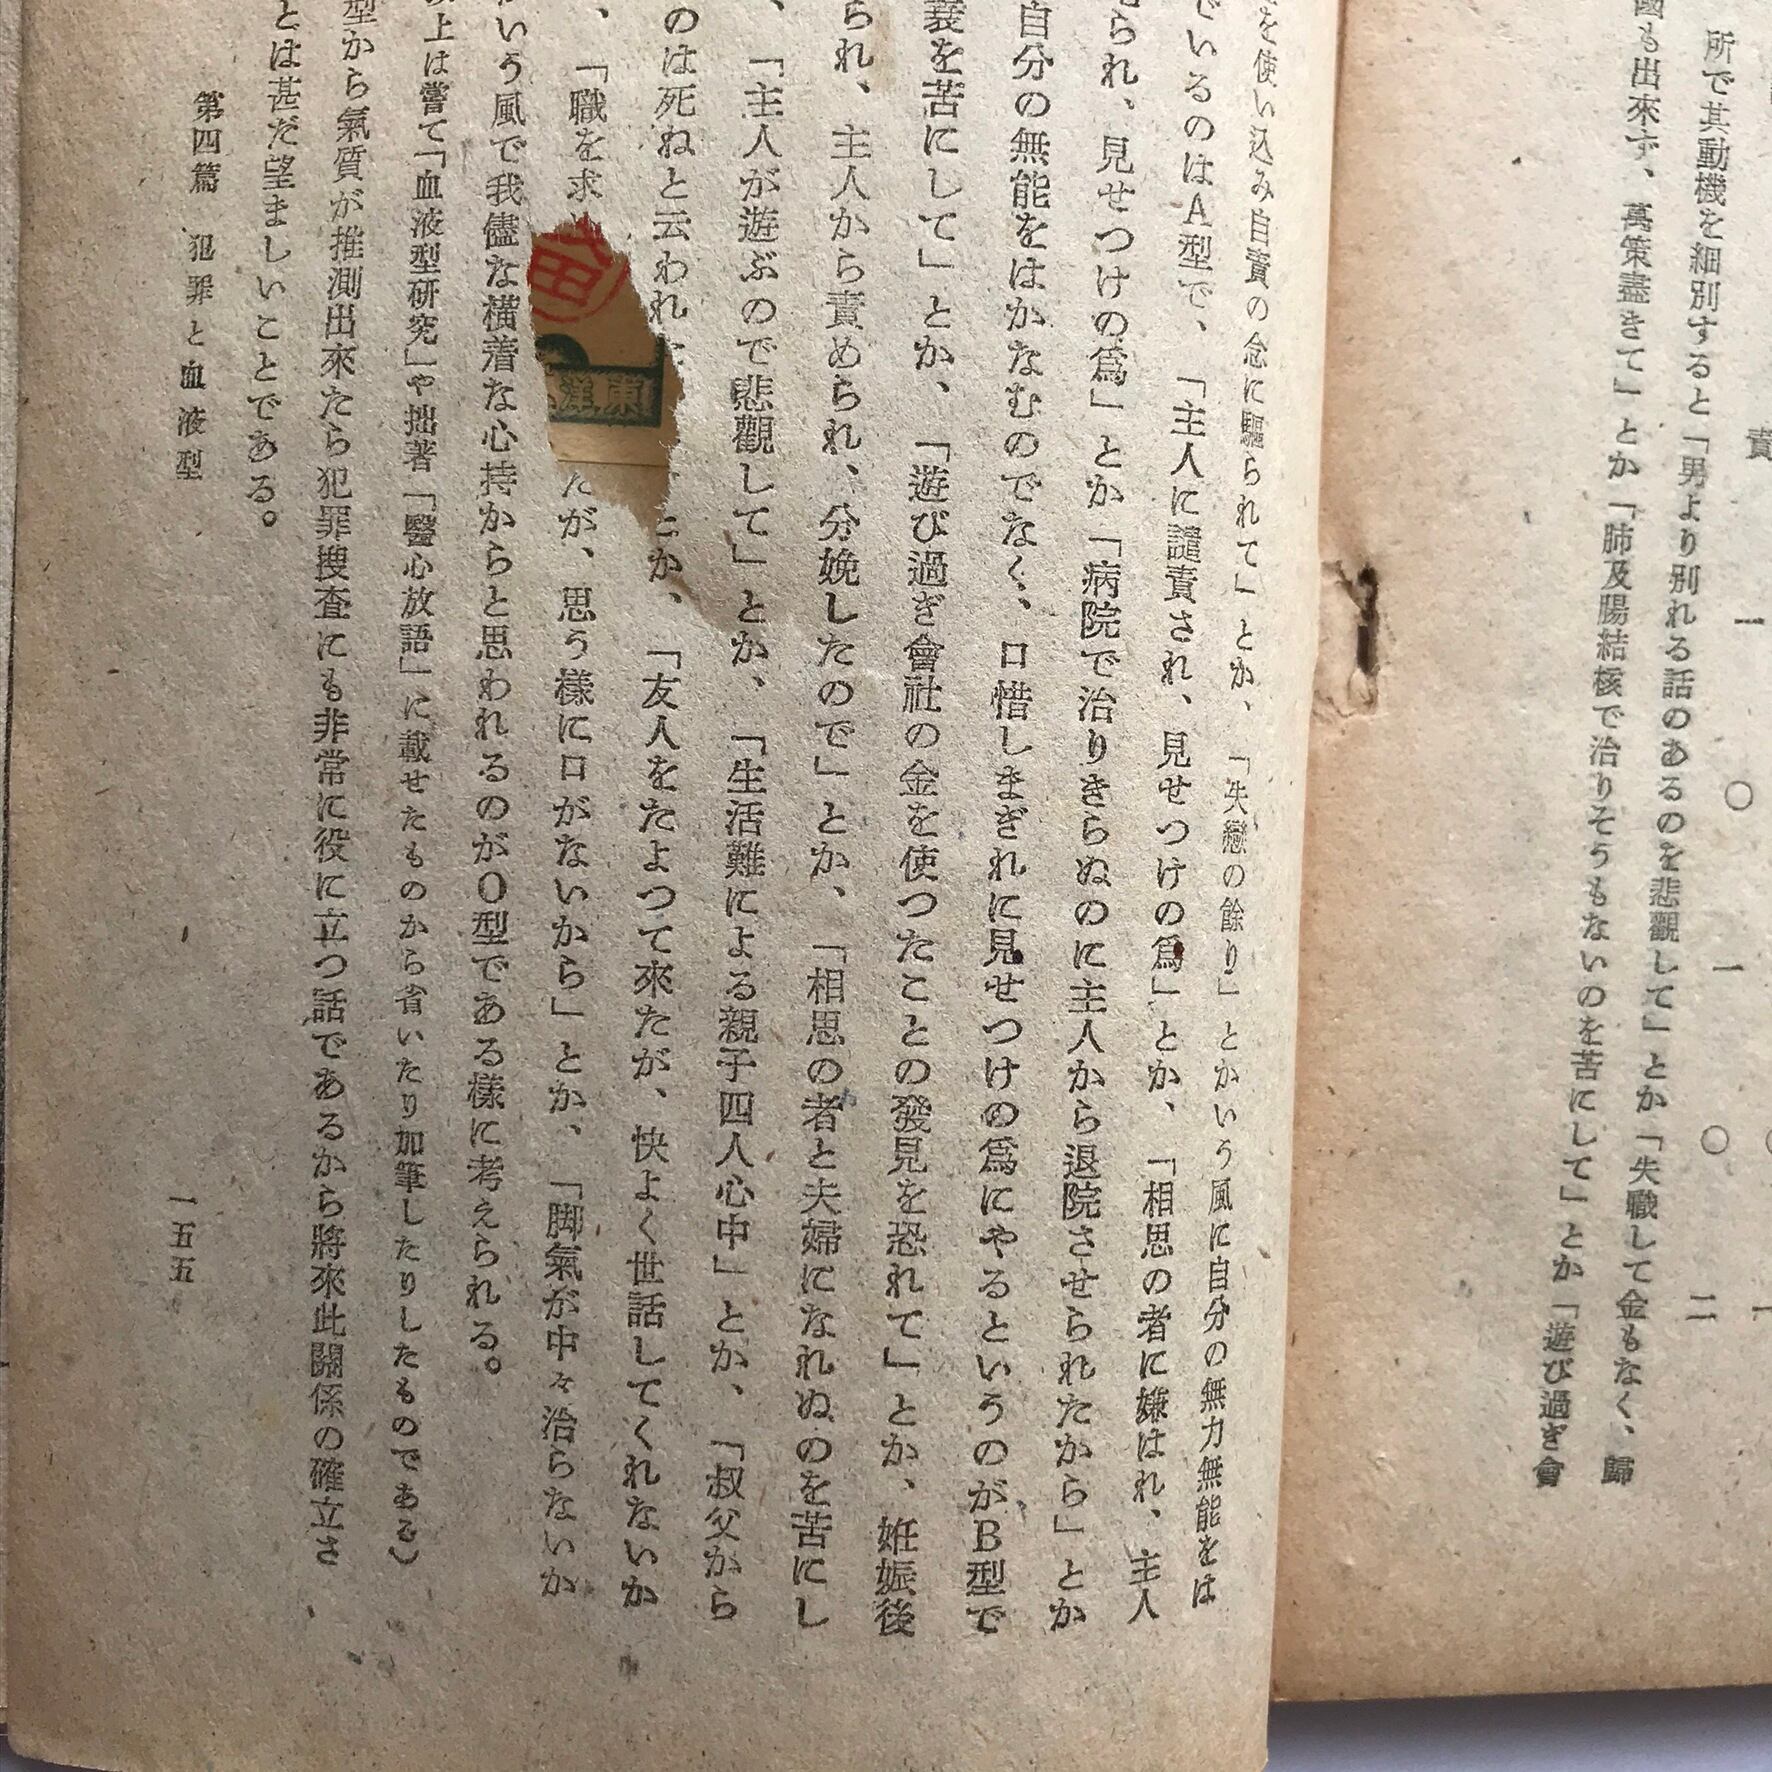 責
一 〇 一 〇 二
所で其動機を細別すると「男より別れる話のあるのを悲觀して」とか「失職して金もなく、歸
國も出來ず、萬策盡きて」とか「肺及腸結核で治りそうもないのを苦にして」とか「遊び過ぎ會
を使い込み自責の念に驅られて」とか、「失戀の餘り」とかいう風に自分の無力無能をは
でいるのはA型で、「主人に譴責され、見せつけの爲」とか、「相思の者に嫌はれ、主人
られ、見せつけの爲」とか「病院で治りきらぬのに主人から退院させられたから」とか
自分の無能をはかなむのでなく、口惜しまぎれに見せつけの爲にやるというのがB型で
を苦にして」とか、「遊び過ぎ會社の金を使つたことの發見を恐れて」とか、姙娠後
られ、主人から責められ、分娩したので」とか、「相思の者と夫婦になれぬのを苦にし
、「主人が遊ぶので悲觀して」とか、「生活難による親子四人心中」とか、「叔父から
のは死ねと云われ とか、「友人をたよつて來たが、快よく世話してくれないか
、「職を求 たが、思う樣に口がないから」とか、「脚氣が中々治らないか
いう風で我儘な橫着な心持からと思われるのがO型である樣に考えられる。
上は嘗て「血液型硏究」や拙著「醫心放語」に載せたものから省いたり加筆したりしたものである)
型から氣質が推測出來たら犯罪搜査にも非常に役に立つ話であるから將來此關係の確立さ
とは甚だ望ましいことである。
第四篇 犯罪と血液型
一五五
東洋